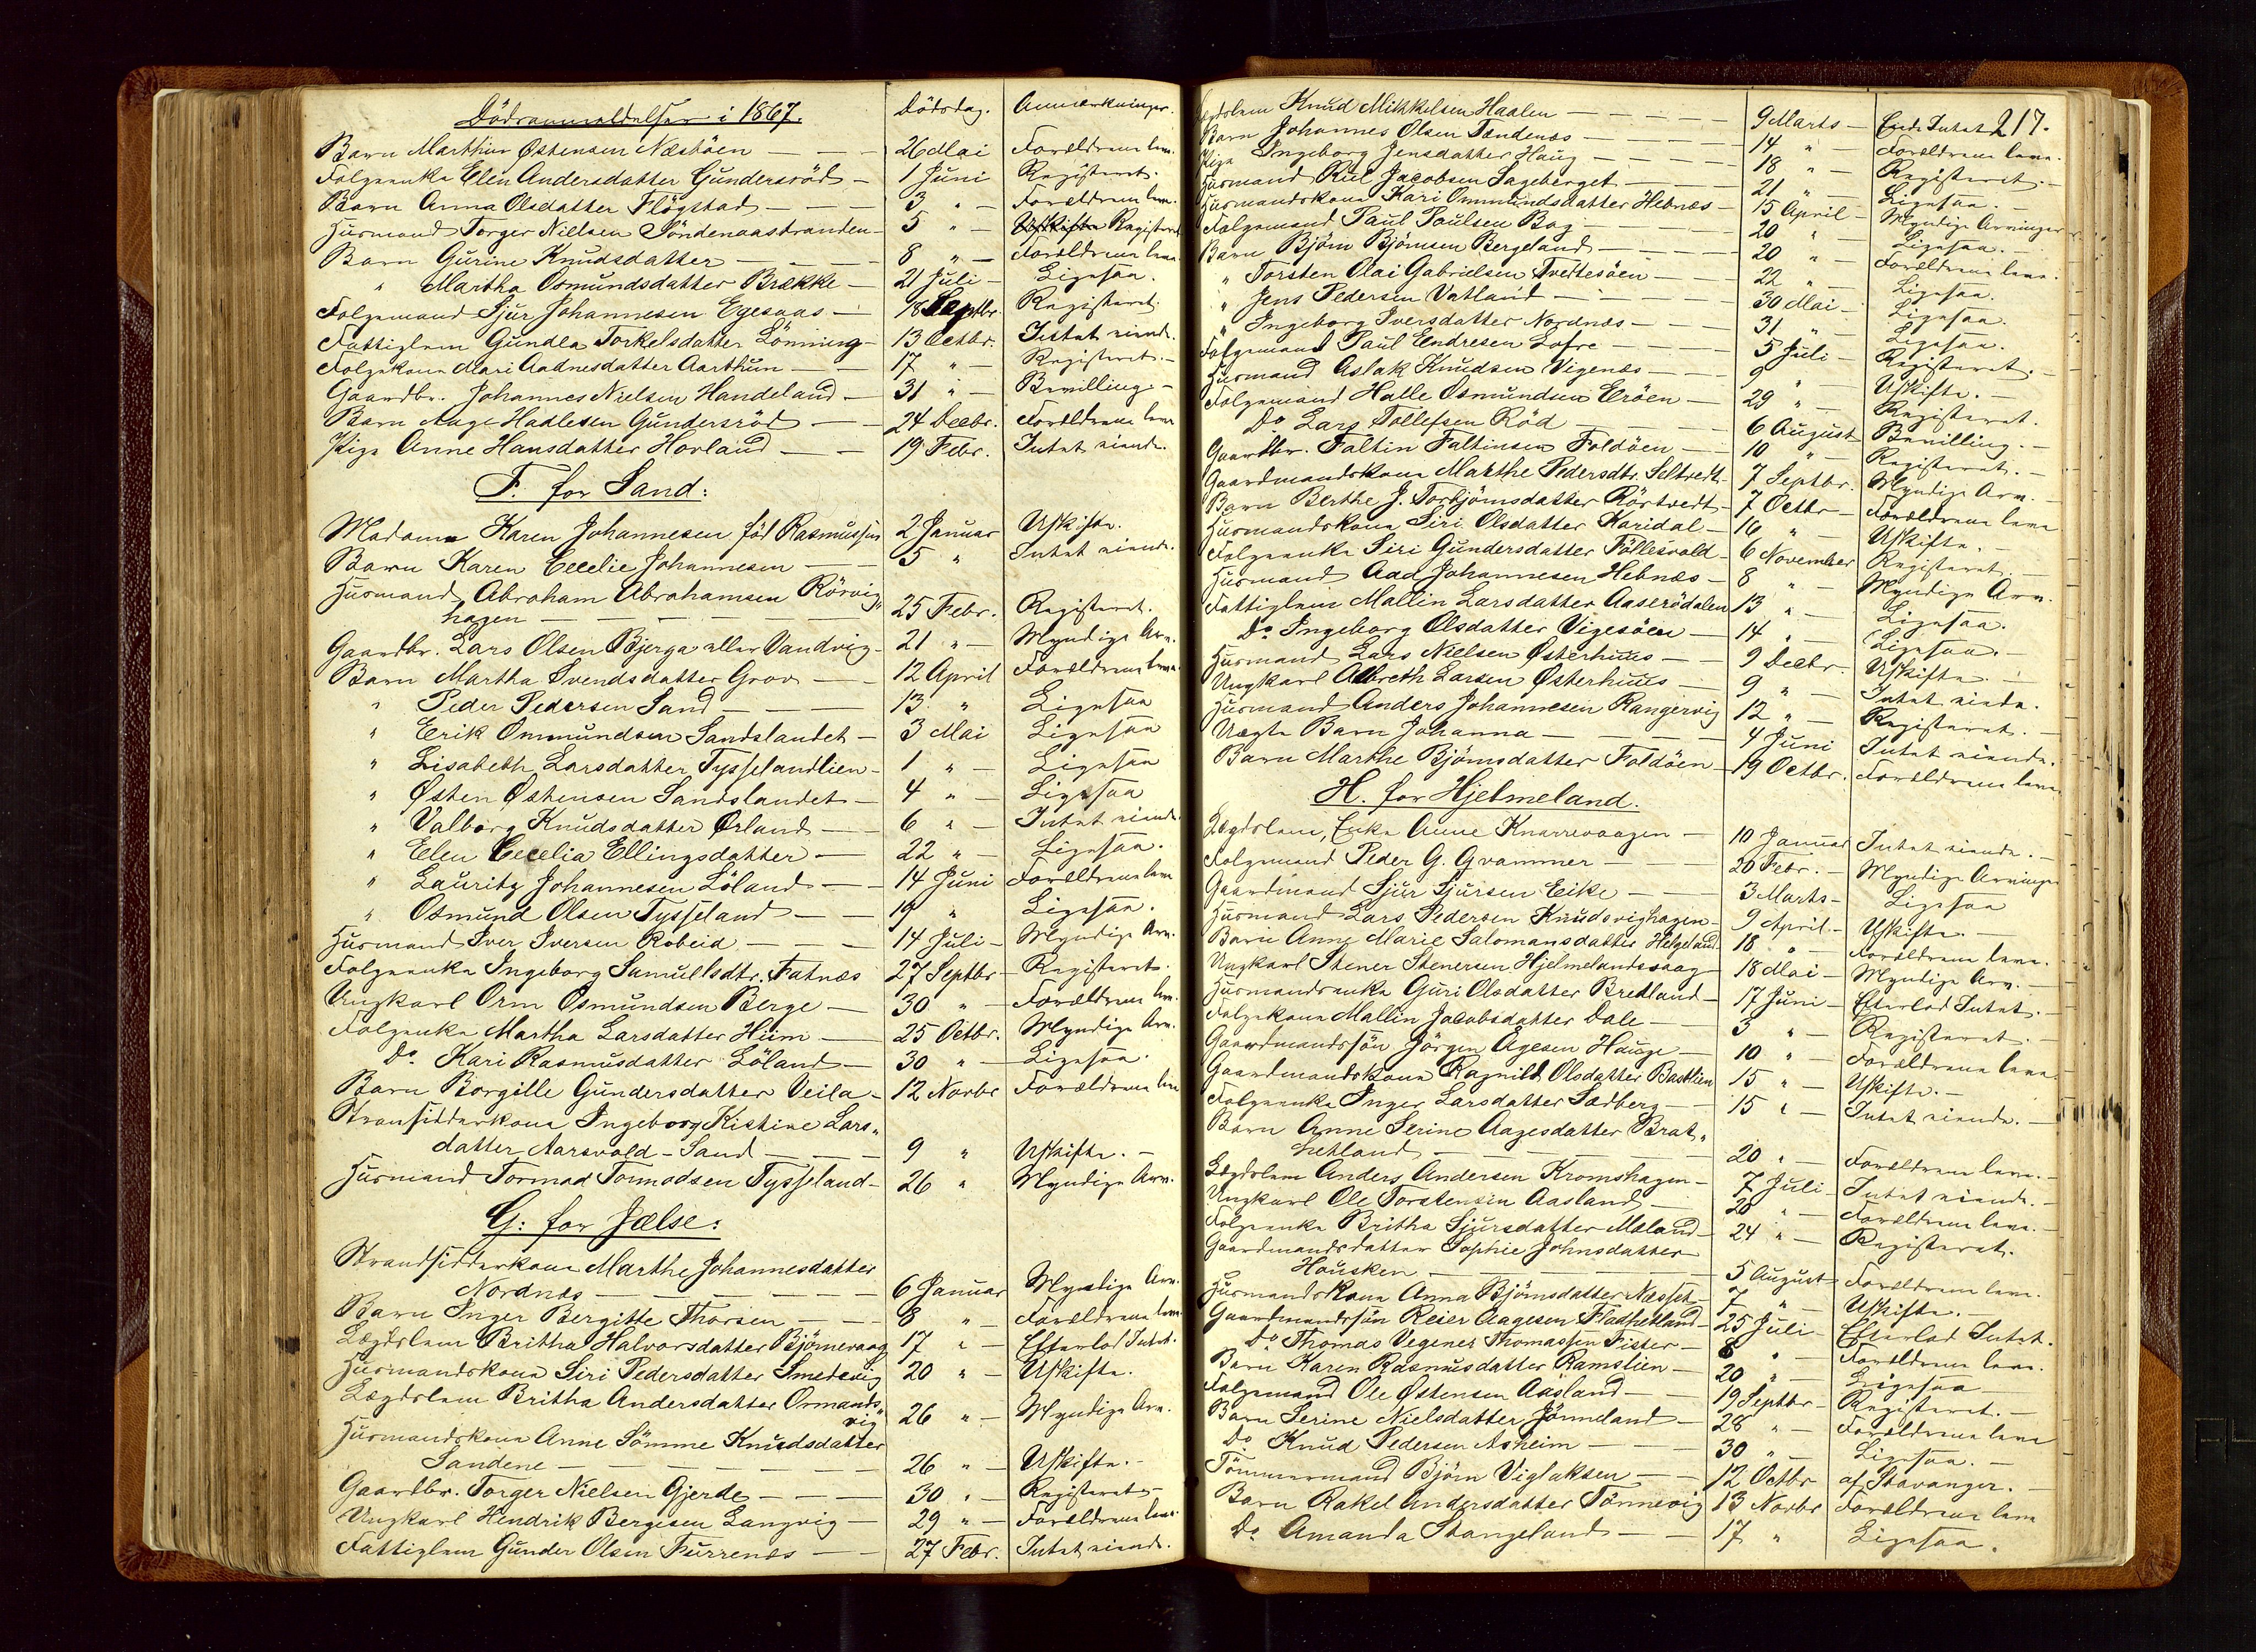 Dødsanmeldelser i 1867. Dødsdag. Anmærkninger.
Barn Marthin Østensen Næstöen — — 26 Mai Forældrene leve.
Folgeenke Elen Andersdatter Gundersröd — 1 Juni Registeret.
Barn Anna Olsdatter Flögstad — — 3 " — Forældrene leve.
Husmand Torger Nielsen Söndenaastranden — 5 " — Udskifte Registeret
Barn Gurine Knudsdatter — — — 8 " — Forældrene leve.
" Martha Osmundsdatter Brække — 21 Juli — Ligesaa.
Folgemand Sjur Johannesen Egesaas — 18 Septbr. Registeret.
Fattiglem Gundla Torkelsdatter Lönning — 13 Octbr. Intet eiende.
Folgekone Mari Aadnesdatter Aarthun — — 17 " — Registeret. —
Gaardbr. Johannes Nielsen Handeland — 31 " — Bevilling. —
Barn Aage Hadlesen Gundersröd — — 24 Decbr. Forældrene leve
Pige Anne Hansdatter Hovland — — 19 Febr. Intet eiende.
F. for Sand:
Madame Karen Johannesen föd Rasmussen 2 Januar Udskifte.
Barn Karen Cecelie Johannesen — — 5 " Intet eiende.
Husmand Abraham Abrahamsen Rörvig„
hagen — — — — — 25 Febr. Registeret.
Gaardbr. Lars Olsen Bjerga eller Vandvig — 21 " — Myndige Arv.
Barn Martha Svendsdatter Grov — — 12 April Forældrene leve.
" Peder Pedersen Sand — — — 13 " Ligesaa
" Erik Ommundsen Sandslandet — 3 Mai Ligesaa
" Lisabeth Larsdatter Tysselandlien — 1 " — Ligesaa
" Østen Østensen Sandslandet — 4 " — Ligesaa
" Valborg Knudsdatter Ørland — — 6 " — Intet eiende.
" Elen Cecelia Ellingsdatter — — 22 " — Ligesaa.
" Lauritz Johannesen Löland — — 14 Juni Forældrene leve
" Osmund Olsen Tysseland — — 19 " Ligesaa.
Husmand Iver Iversen Robeid — — — 14 Juli — Myndige Arv.
Folgeenke Ingeborg Samuelsdtr. Fatnæs 27 Septbr — Registeret.
Ungkarl Orm Osmundsen Berge — — 30 " — Forældrene leve.
Folgenke Martha Larsdatter Hiim — 25 Octbr. Myndige Arv.
Do. Kari Rasmusdatter Löland — 30 " — Ligesaa.
Barn Borgille Gundersdatter Veila — 12 Novbr Forældrene leve
Stransidderkone Ingeborg Kistine Lars„
datter Aarsvold - Sand — — — 9 " Udskifte. —
Husmand Tormod Tormodsen Tysseland — 26 " Myndige Arv.
G: for Jelse:
Strandsidderkone Marthe Johannesdatter
Nordnæs — — — — — 6 Januar Myndige Arv.
Barn Inger Bergitte Thorsen — — 8 " — Forældrene leve.
Lægdslem Britha Halvorsdatter Björnevaag 17 " — Efterlod Intet.
Husmandskone Siri Pedersdatter Smedevig 20 " — Udskifte.
Lægdslem Britha Andersdatter Ormands„
vig 26 " — Myndige Arv.
Husmandskone Anne Sömme Knudsdatter
Sandene — — — — — 26 " — Udskifte. —
Gaardbr. Torger Nielsen Gjerde — — — 30 " — Registeret —
Ungkarl Hendrik Bergesen Langvig — 29 " — Forældrene leve.
Fattiglem Gunder Olsen Furrenes — — 27 Febr. Intet eiende.
217.
Lægdslem Knud Mikkelsen Haalen — — — 9 Marts — Intet
Barn Johannes Olsen Tændenæs — — — 14 " — Forældrene leve.
Pige Ingeborg Jensdatter Haug — — — 18 " — Registeret. —
Husmand Riel Jacobsen Sageberget — — 21 " Ligesaa. —
Husmandskone Kari Ommundsdatter Hebnæs — 15 April — Myndige Arvinger
Folgemand Paul Poulsen Bog — — — 20 " Ligesaa. —
Barn Björn Björnsen Bergeland — — — 20 " — Forældrene leve.
" Torsten Olai Gabrielsen Tvedtesöen — 22 " — Ligesaa.
" Jens Pedersen Vatland — — — 30 Mai — Ligesaa.
" Ingeborg Iversdatter Nordnæs — — 31 " Ligesaa.
Folgemand Paul Endresen Lofre — — — 5 Juli — Registeret. —
Husmand Aslak Knudsen Vigenæs — — 9 " — Udskifte. —
Folgemand Halle Osmundsen Eröen — 29 " — Registeret.
Do Lars Tollefsen Röd — — — 6 August Bevilling. —
Gaardbr. Faltin Faltinsen Foldöen — — 10 " — Registeret. —
Gaardmandskone Marthe Pedersdtr. Seltvedt — 7 Septbr. Myndige Arv. —
Barn Berthe J. Torbjörnsdatter Rörtvedt — 7 Octbr — Forældrene leve
Husmandskone Siri Olsdatter Karidal — 16 " — Udskifte. —
Folgeenke Siri Gundersdatter Föllesvold — 6 November Registeret. —
Husmand Aad Johannesen Hebnæs — 8 " — Myndige Arv.
Fattiglem Mallin Larsdatter Aaserödalen 13 " — Ligesaa.
Do. Ingeborg Olsdatter Vigesöen — 14 " Ligesaa. —
Husmand Lars Nielsen Østerhuus — — 9 Decbr Udskifte. —
Ungkarl Albreth Larsen Østerhuus — 9 " — Intet eiende.
Husmand Anders Johannesen Rangervig 12 " — Registeret. —
Uægte Barn Johanna — — — — 4 Juni Intet eiende.
Barn Marthe Björnsdatter Foldöen — 19 Octbr. Forældrene leve
H. for Hjelmeland.
Lægdslem, Enke Anne Knarrevaagen — 10 Januar Intet eiende. —
Folgemand Peder G. Gvammer — — 20 Febr. — Myndige Arvinger
Gaardmand Sjur Sjursen Eike — — 3 Marts — Ligesaa
Husmand Lars Pedersen Knudsvighagen — 9 April — Udskifte. —
Barn Anne Marie Salomonsdatter Helgeland 18 " — Forældrene leve.
Ungkarl Stener Stenersen Hjelmelandsvaag — 18 Mai — Myndige Arv. —
Husmandsenke Guri Olsdatter Bredland — 17 Juni — Efterlod Intet. —
Folgekone Mallin Jacobsdatter Dale — 3 " — Registeret. —
Gaardmandssön Jörgen Ågesen Hauge — 10 " — Forældrene leve.
Gaardmandskone Ragnild Olsdatter Bastlien 15 " — Udskifte. —
Folgeenke Inger Larsdatter Sædberg — 15 " — Intet eiende. —
Barn Anne Serine Aagesdatter Brat„
hetland — — — — 20 " — Forældrene leve. —
Lægdslem Anders Andersen Kromshagen — 7 Juli — Intet eiende. —
Ungkarl Ole Torstensen Aasland — 20 " — Forældrene leve. —
Folgeenke Britha Sjursdatter Mæland — 24 " — Registeret.
Gaardmandsdatter Sophie Johnsdatter
Housken — — — — — 5 August Forældrene leve.
Husmandskone Anna Björnsdatter Næsset — 7 " — Udskifte. —
Gaardmandssön Reier Aagesen Fladhetland — 25 Juli — Efterlod Intet.
Do Thomas Vegener Thomassen Fister — 8 " — Forældrene leve.
Barn Karen Rasmusdatter Ramslien — 20 " — Ligesaa —
Folgemand Ole Østensen Aasland — — 19 Septbr — Registeret. —
Barn Serine Nielsdatter Jönneland — 28 " — Forældrene leve
Do Knud Pedersen Asheim — — — 30 " — Ligesaa. —
Tömmermand Björn Viglaksen — — 12 Octbr af Stavanger. —
Barn Rakel Andersdatter Tönnevig 13 Novbr Forældrene leve
Do. Amanda Stangeland — — — 17 " Ligesaa.